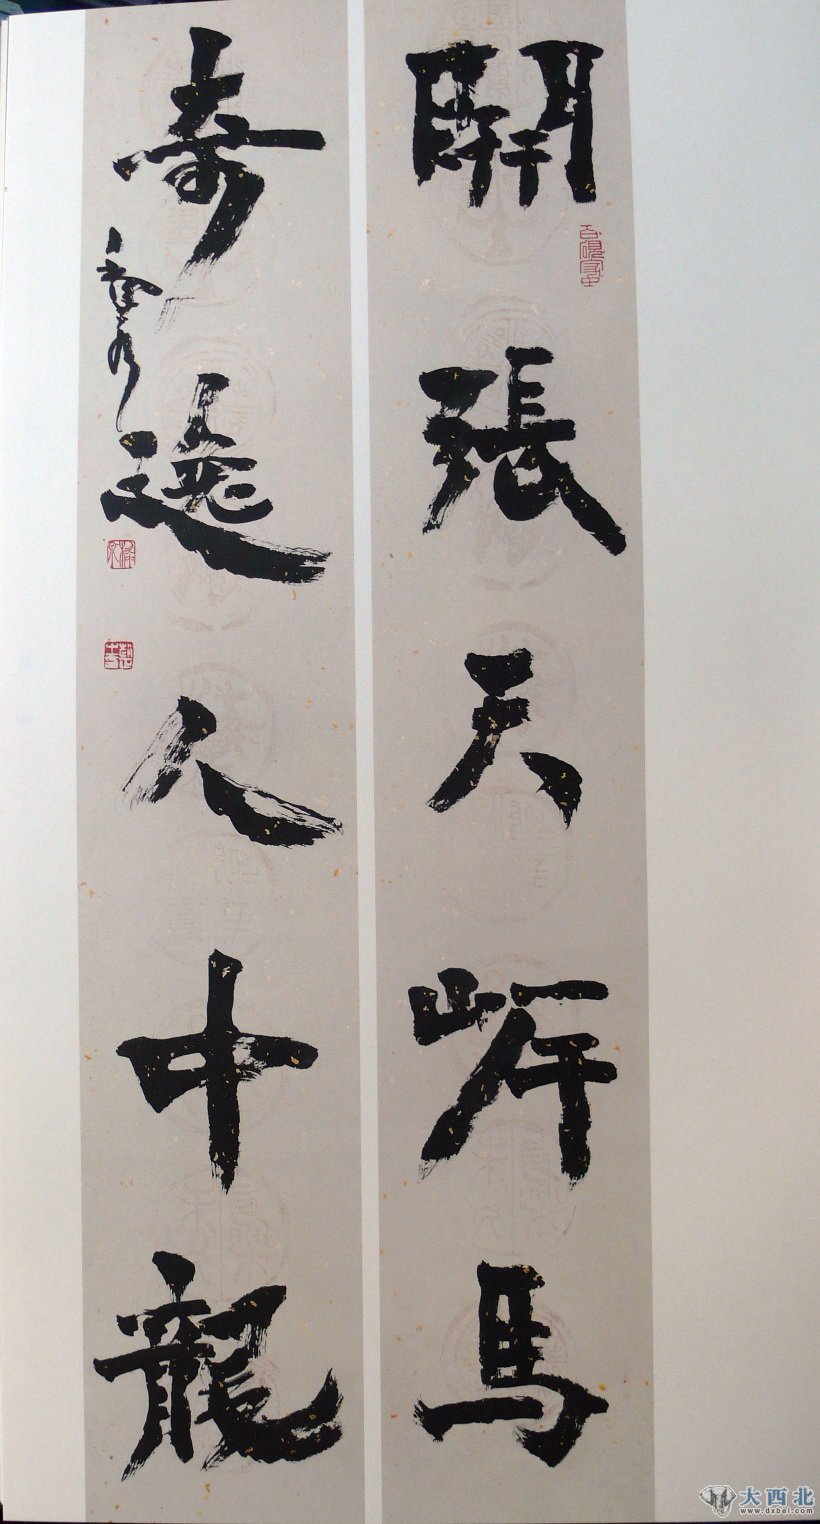 開張天岸馬
奇逸人中龍
大西北
www.dxbei.com